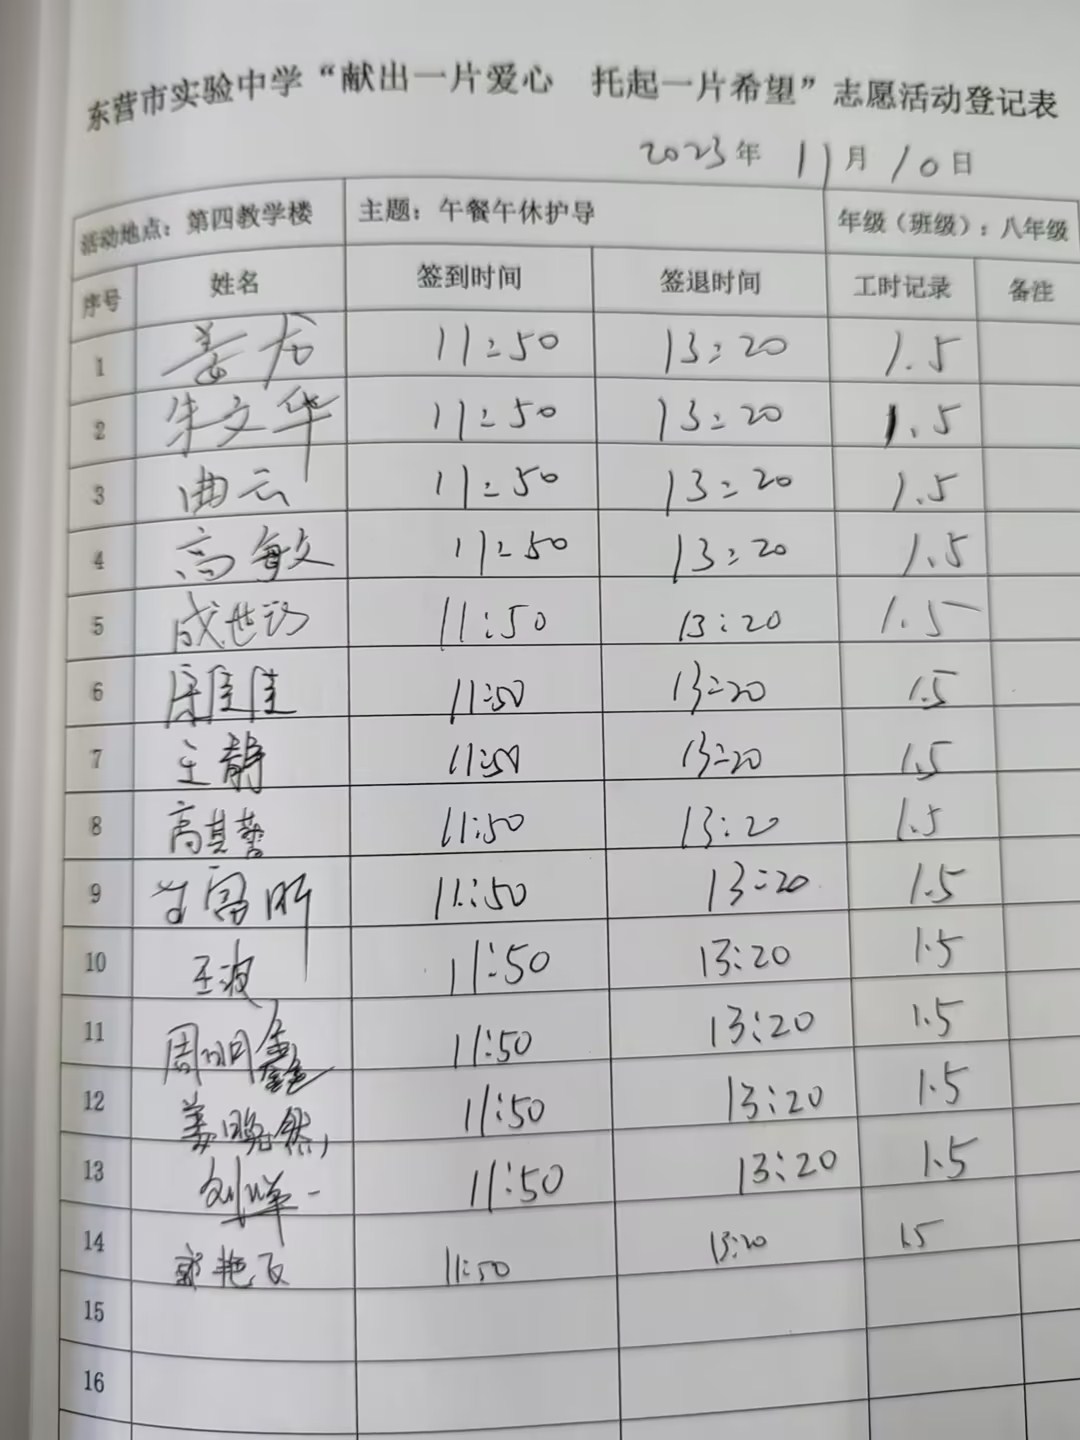 东营市实验中学“献出一片爱心 托起一片希望”志愿活动登记表
2023年 11月 10日
活动地点：第四教学楼 主题：午餐午休护导 年级（班级）：八年级
序号 姓名 签到时间 签退时间 工时记录 备注
1 姜龙 11:50 13:20 1.5
2 朱文华 11:50 13:20 1.5
3 曲云 11:50 13:20 1.5
4 高敏 11:50 13:20 1.5
5 成世 11:50 13:20 1.5
6 佳佳 11:50 13:20 1.5
7 王静 11:50 13:20 1.5
8 高其 11:50 13:20 1.5
9 11:50 13:20 1.5
10 王波 11:50 13:20 1.5
11 周明鑫 11:50 13:20 1.5
12 姜晓然 11:50 13:20 1.5
13 刘洋 11:50 13:20 1.5
14 郭艳飞 11:50 13:20 1.5
15
16